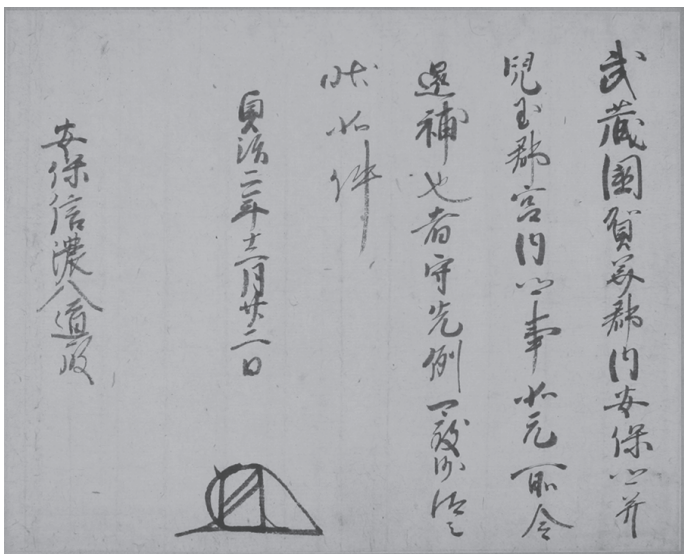 武蔵国賀美郡内安保郷并
児玉郡宮内郷事如元所令
還補也者守先例可致沙汰之
状如件
貞治二年十二月廿二日
安保信濃入道殿